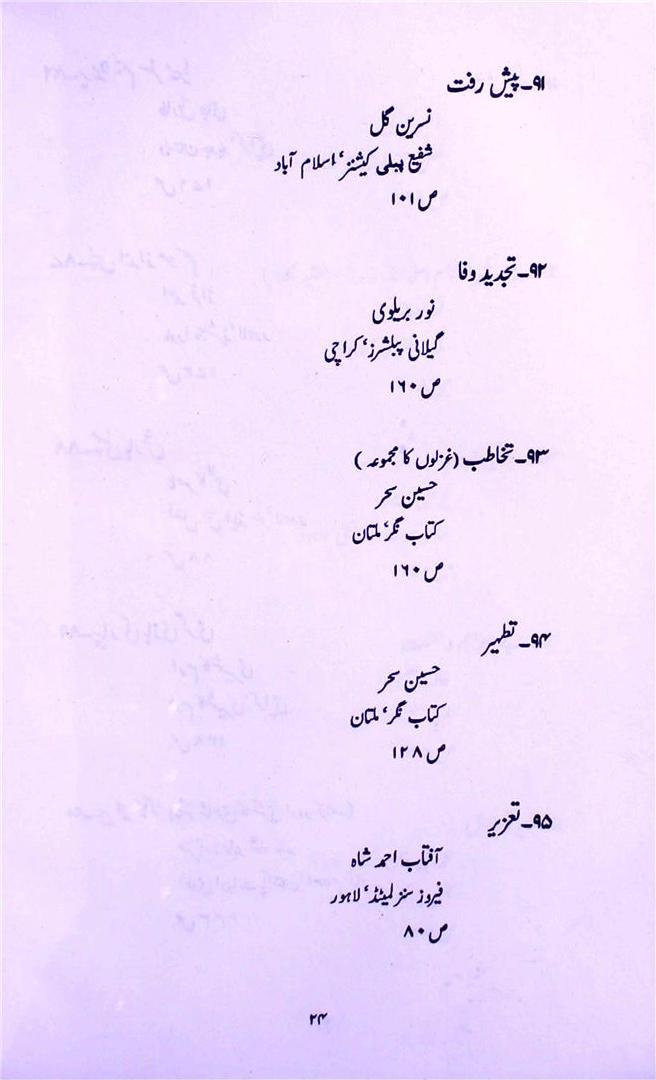 ۹۱۔ پیش رفت
نسرین گل
شفیع پبلی کیشنز، اسلام آباد
ص ۱۰۱
۹۲۔ تجدید وفا
نور بریلوی
گیلانی پبلشرز، کراچی
ص ۱۶۰
۹۳۔ تخاطب (غزلوں کا مجموعہ )
حسین سحر
کتاب نگر، ملتان
ص ۱۶۰
۹۴۔ تطہیر
حسین سحر
کتاب نگر، ملتان
ص ۱۲۸
۹۵۔ تعزیر
آفتاب احمد شاہ
فیروز سنز لمیٹڈ، لاہور
ص ۸۰
۲۴